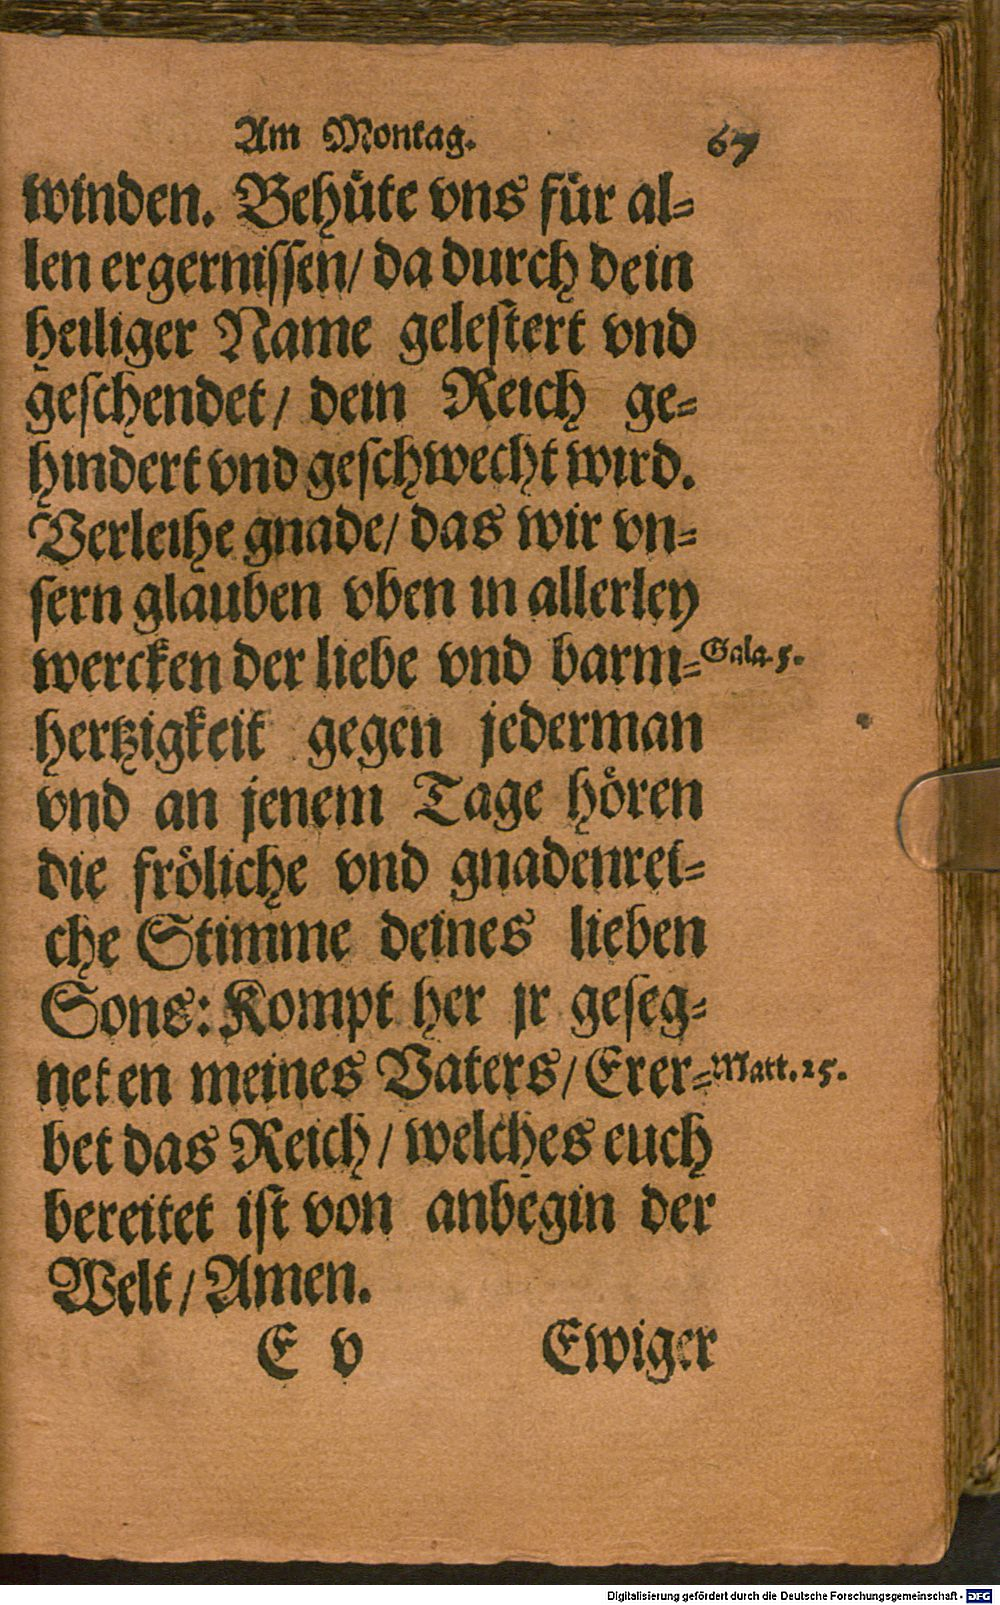 Am Montag. 67
winden. Behüte vns für al⸗
len ergernissen/ da durch dein
heiliger Name gelestert vnd
geschendet/ dein Reich ge⸗
hindert vnd geschwecht wird.
Verleihe gnade/ das wir vn⸗
sern glauben vben in allerley
wercken der liebe vnd barm⸗ Gala. 5.
hertzigkeit gegen jederman
vnd an jenem Tage hören
die fröliche vnd gnadenrei⸗
che Stimme deines lieben
Sons: Kompt her jr geseg⸗
neten meines Vaters/ Erer⸗ Matt. 25.
bet das Reich/ welches euch
bereitet ist von anbegin der
Welt/ Amen.
E v Ewiger
Digitalisierung gefördert durch die Deutsche Forschungsgemeinschaft - DFG